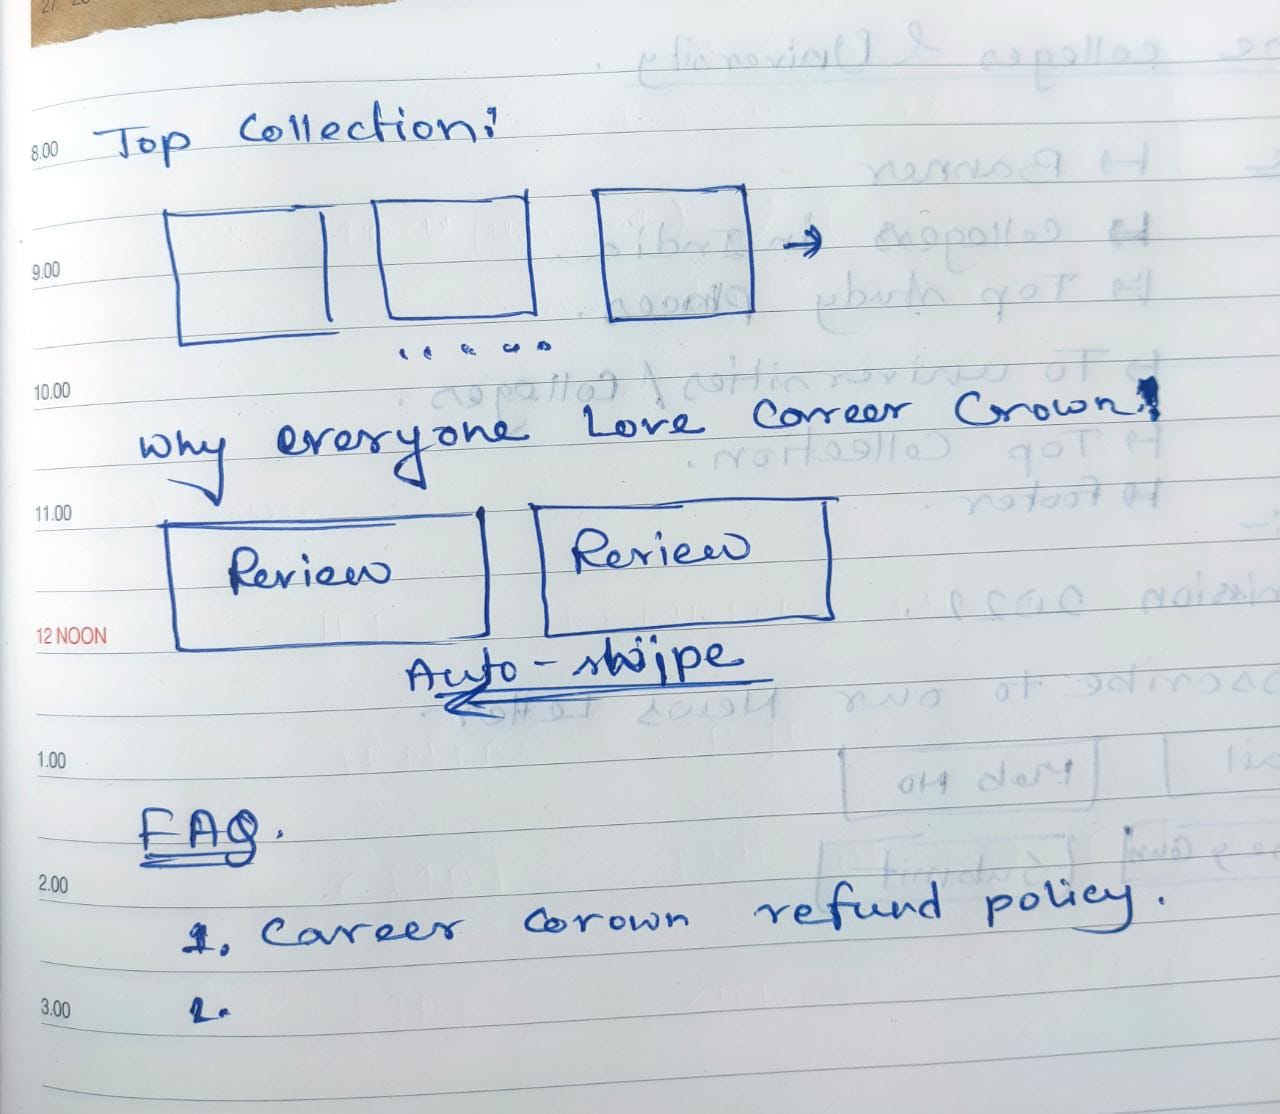 27
8.00 Top Collection:
9.00
10.00
Why everyone Love Career Crown!
11.00
Review Review
12 NOON
Auto-swipe
1.00
FAQ.
2.00
1. Career Crown refund policy.
3.00 2.